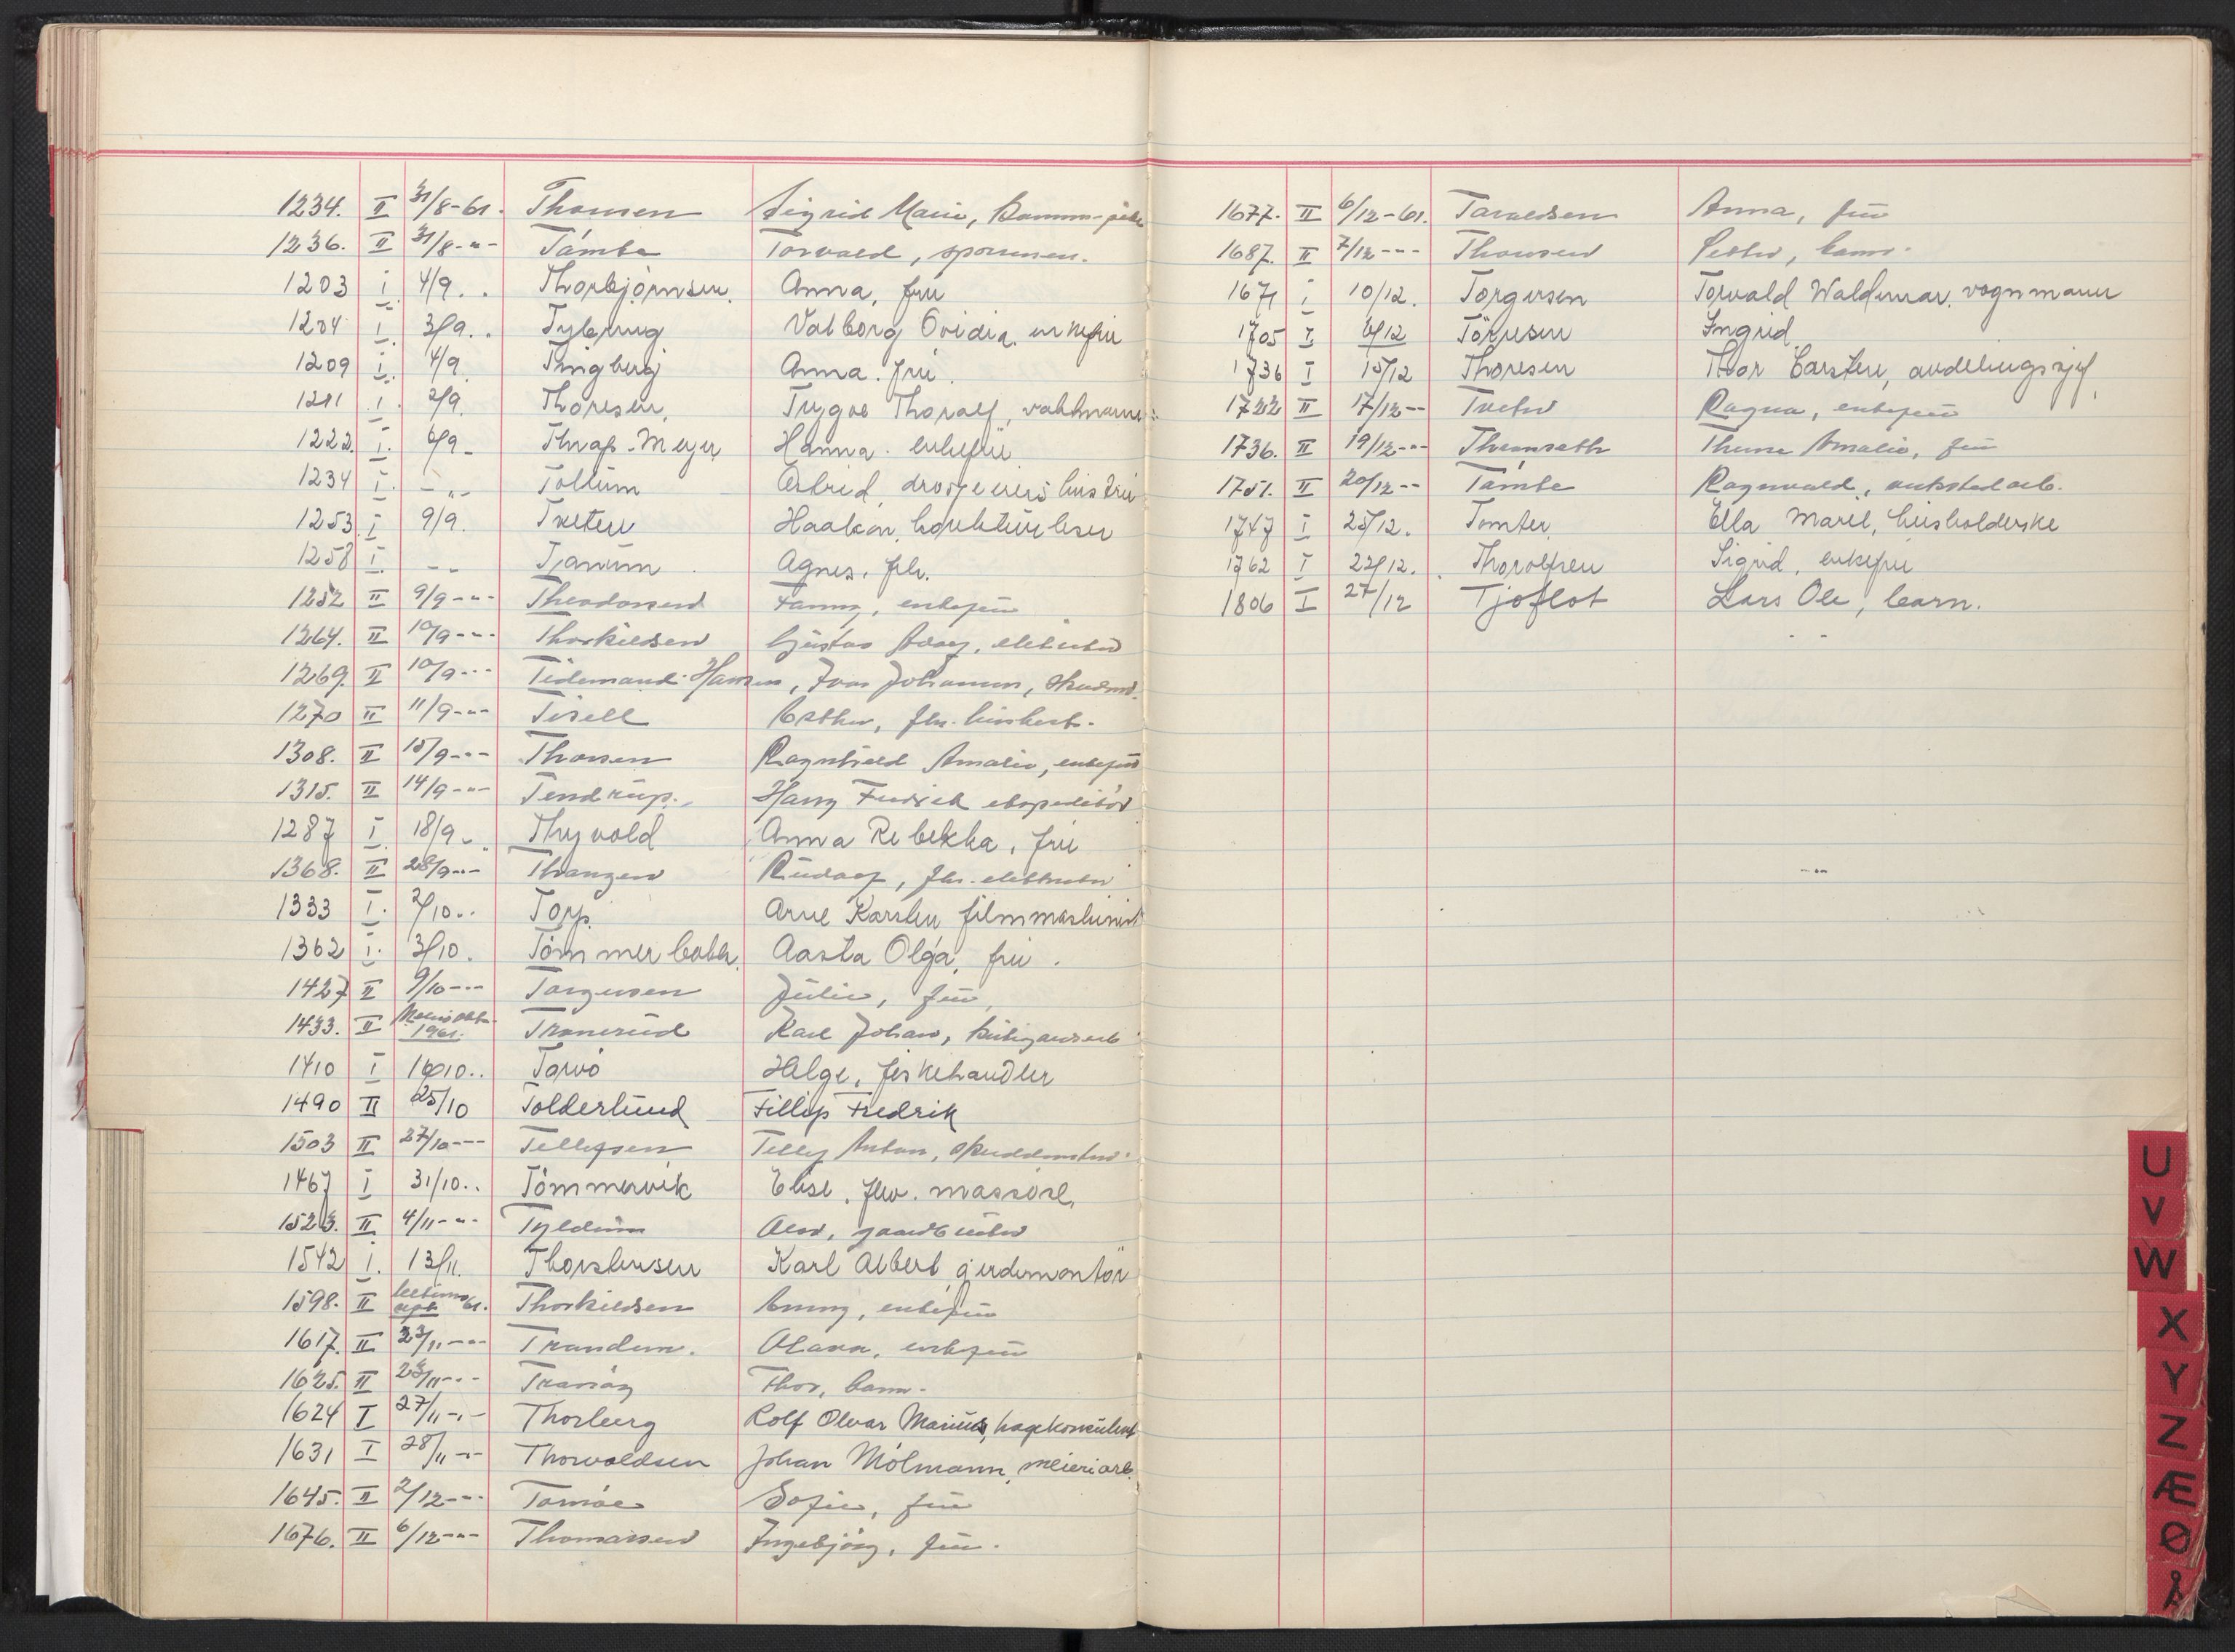 1234. II 31/8-61. Thomsen Sigrid Marie,
1236. II 31/8-"- Támba Torvald,
1203 I 4/9.. Thorbjørnsen. Anna, frú
1204 I. 3/9.. Valborg Ovidia. enkefrú
1209 I. 4/9. Tingberg Anna. frú.
1211 I. 2/9. Thoresen. Trygve Thoralf, vaktmann
1222. I. 6/9- Thrap-Meyer Hanna. enkefrú
1234 I. -"- Tollúm Astrid, drosjeeiers hústrú
1253 I 9/9. Tveten Haakon, korrektúrleser
1258 I. -- Tranúm Agnes. frk.
1252 II 9/9-"- Theodorsen Fanny, enkefrú
1264. II 10/9-"- Thorkildsen Gústav Adolf,
1269. II 10/9-"- Tidemand-Hansen, Ivar Johannes,
1270 II 11/9-"- Tisell Esther, fhv.
1308. II 15/9-"- Thorsen Ragnhild Amalie, enkefrú
1315. II 14/9-"- Tendrúp. Harry Fredrik ekspeditör
1287 I. 18/9.. Thyvold Anna Rebekka, frú
1368. II 28/9-"- Rúdolf, fhv.
1333 I. 2/10.. Topp. Arne Karsten, filmmaskinist
1362 I. 3/10. Tömmerbakk. Aasta Olga, frú.
1427 II 9/10-"- Torgersen Júlie, frú,
1433. II 1961. Tranerúd Karl Johan,
1410 I 16/10.. Tarvo Helge, fiskehandler
1490 II 25/10 Tolderlúnd Fillip Fredrik
1503 II 27/10-"- Tellefsen Anton,
1467 I 31/10.. Tömmervik Elise, fhv. massöse.
1523. II 4/11-"- Tyldúm
1542 I. 13/11. Thorstensen Karl Albert, gjerdemontör
1598. II 61. Thorkildsen enkefrú
1617. II 23/11-"- Trandem. enkefrú
1625. II 23/11-"- Thor, barn.
1624 I 27/11-"- Thorberg Rolf Olvar Mariús, hagekonsúlent
1631 I 28/11-"- Thorvaldsen Johan Mölmann, meieriarb.
1645. II 2/12-"- Sofie, frú
1676. II 6/12-"- Thomassen Ingebjörg, frú.
1677. II 6/12-61. Taraldsen Anna, frú
1687. II 7/12-"- Petter, barn.
1671 I 10/12. Torgersen Torvald Waldemar. vognmann
1705 I. 6/12 Törresen Ingrid
1736 I 15/12 Thoresen Thor Carsten, avdelingssjef
1722 II 17/12-- Tveter Ragna, enkefrú
1736. II 19/12-"- Amalie, frú
1751. II 20/12-- Támbe Ragnvald,
1747 I 25/12. Tomter Ella Marie, húsholderske
1762 I 22/12. Thorolfsen Sigrid, enkefrú
1806 I 27/12 Tjoflot Lars Ole, barn.
U
V
W
X
Y
Z
Æ
Ø
Å